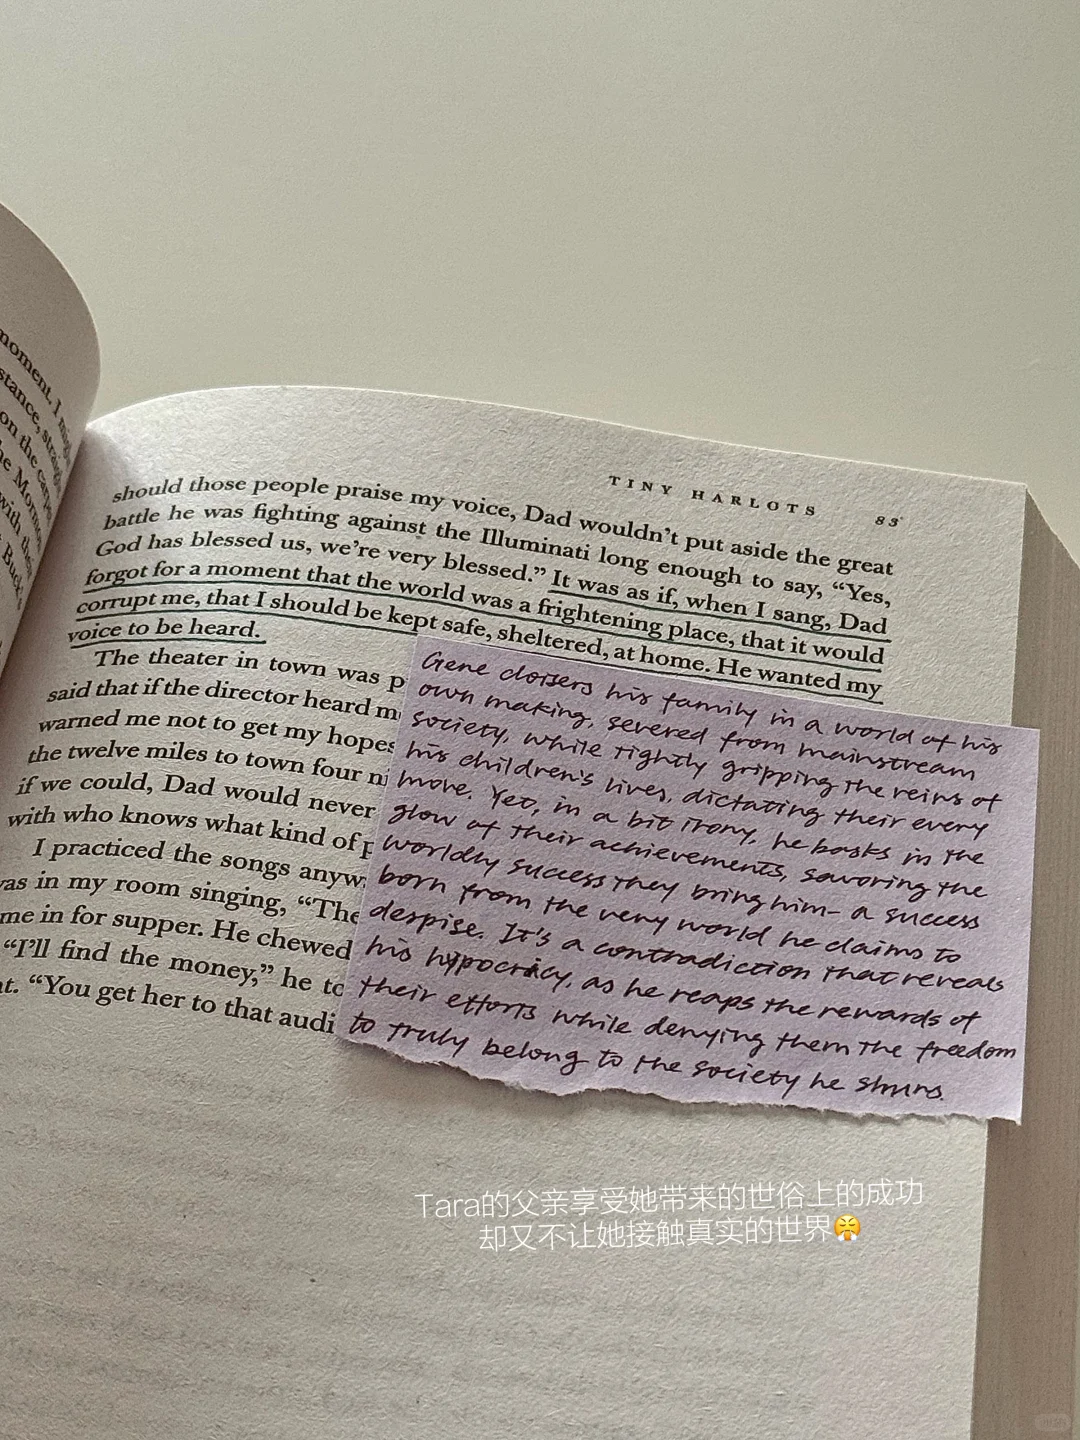 moment, I
stance,
on the
he Mormon
with
Buck's
TINY HARLOTS 83
should those people praise my voice, Dad wouldn't put aside the great
battle he was fighting against the Illuminati long enough to say, “Yes,
God has blessed us, we're very blessed.” It was as if, when I sang, Dad
forgot for a moment that the world was a frightening place, that it would
corrupt me, that I should be kept safe, sheltered, at home. He wanted my
voice to be heard.
The theater in town was
said that if the director heard
warned me not to get my hopes
the twelve miles to town four
if we could, Dad would never
with who knows what kind of
I practiced the songs
was in my room singing, “The
me in for supper. He chewed
“I'll find the money,” he
“You get her to that
Gene cloisters his family in a world of his
own making, severed from mainstream
society, while tightly gripping the reins of
his children's lives, dictating their every
move. Yet, in a bit irony, he basks in the
glow of their achievements, savoring the
worldly success they bring him– a success
born from the very world he claims to
despise. It's a contradiction that reveals
his hypocricy, as he reaps the rewards of
their efforts while denying them the freedom
to truly belong to the society he shuns.
Tara的父亲享受她带来的世俗上的成功
却又不让她接触真实的世界😤